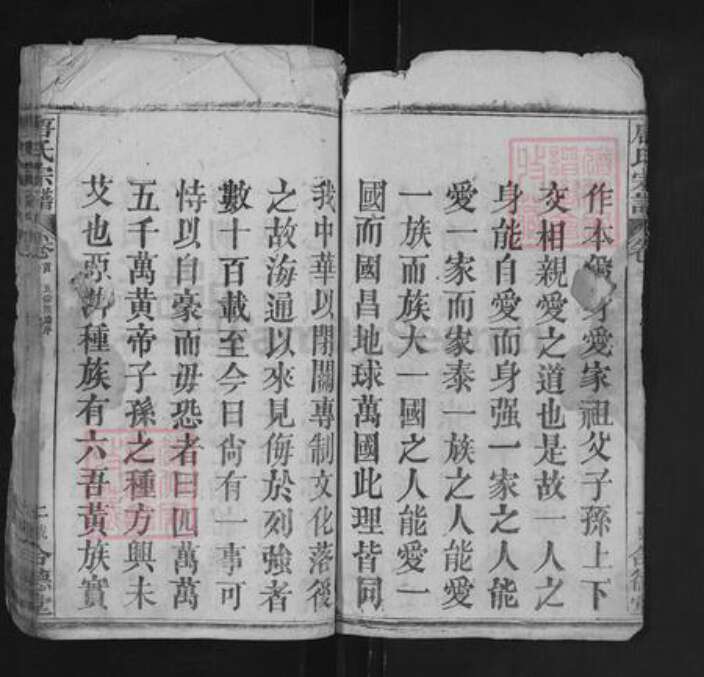 作本身愛家祖父子孫上下
交相親愛之道也是故一人之
身能自愛而身强一家之人能
愛一家而家泰一族之人能愛
一族而族大一國之人能愛一
國而國昌地球萬國此理皆同
我中華以閉關專制文化落後
之故海通以來見侮於列強者
數十百載至今日尙有一事可
恃以自豪而毋恐者曰四萬萬
五千萬黃帝子孫之種方興未
艾也亞洲種族有六吾黃族實
唐氏宗譜
卷首
合德堂